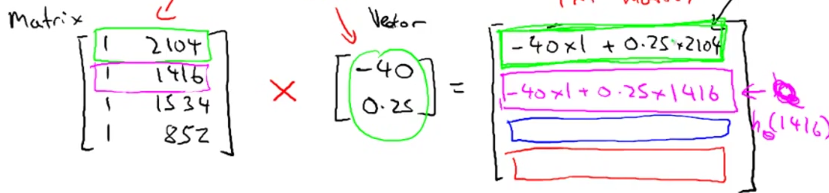 Matrix
Vector
1 2104
1 1416
1 1534
1 852
×
-40
0.25
=
-40×1 + 0.25×2104
-40×1 + 0.25×1416
hθ(1416)